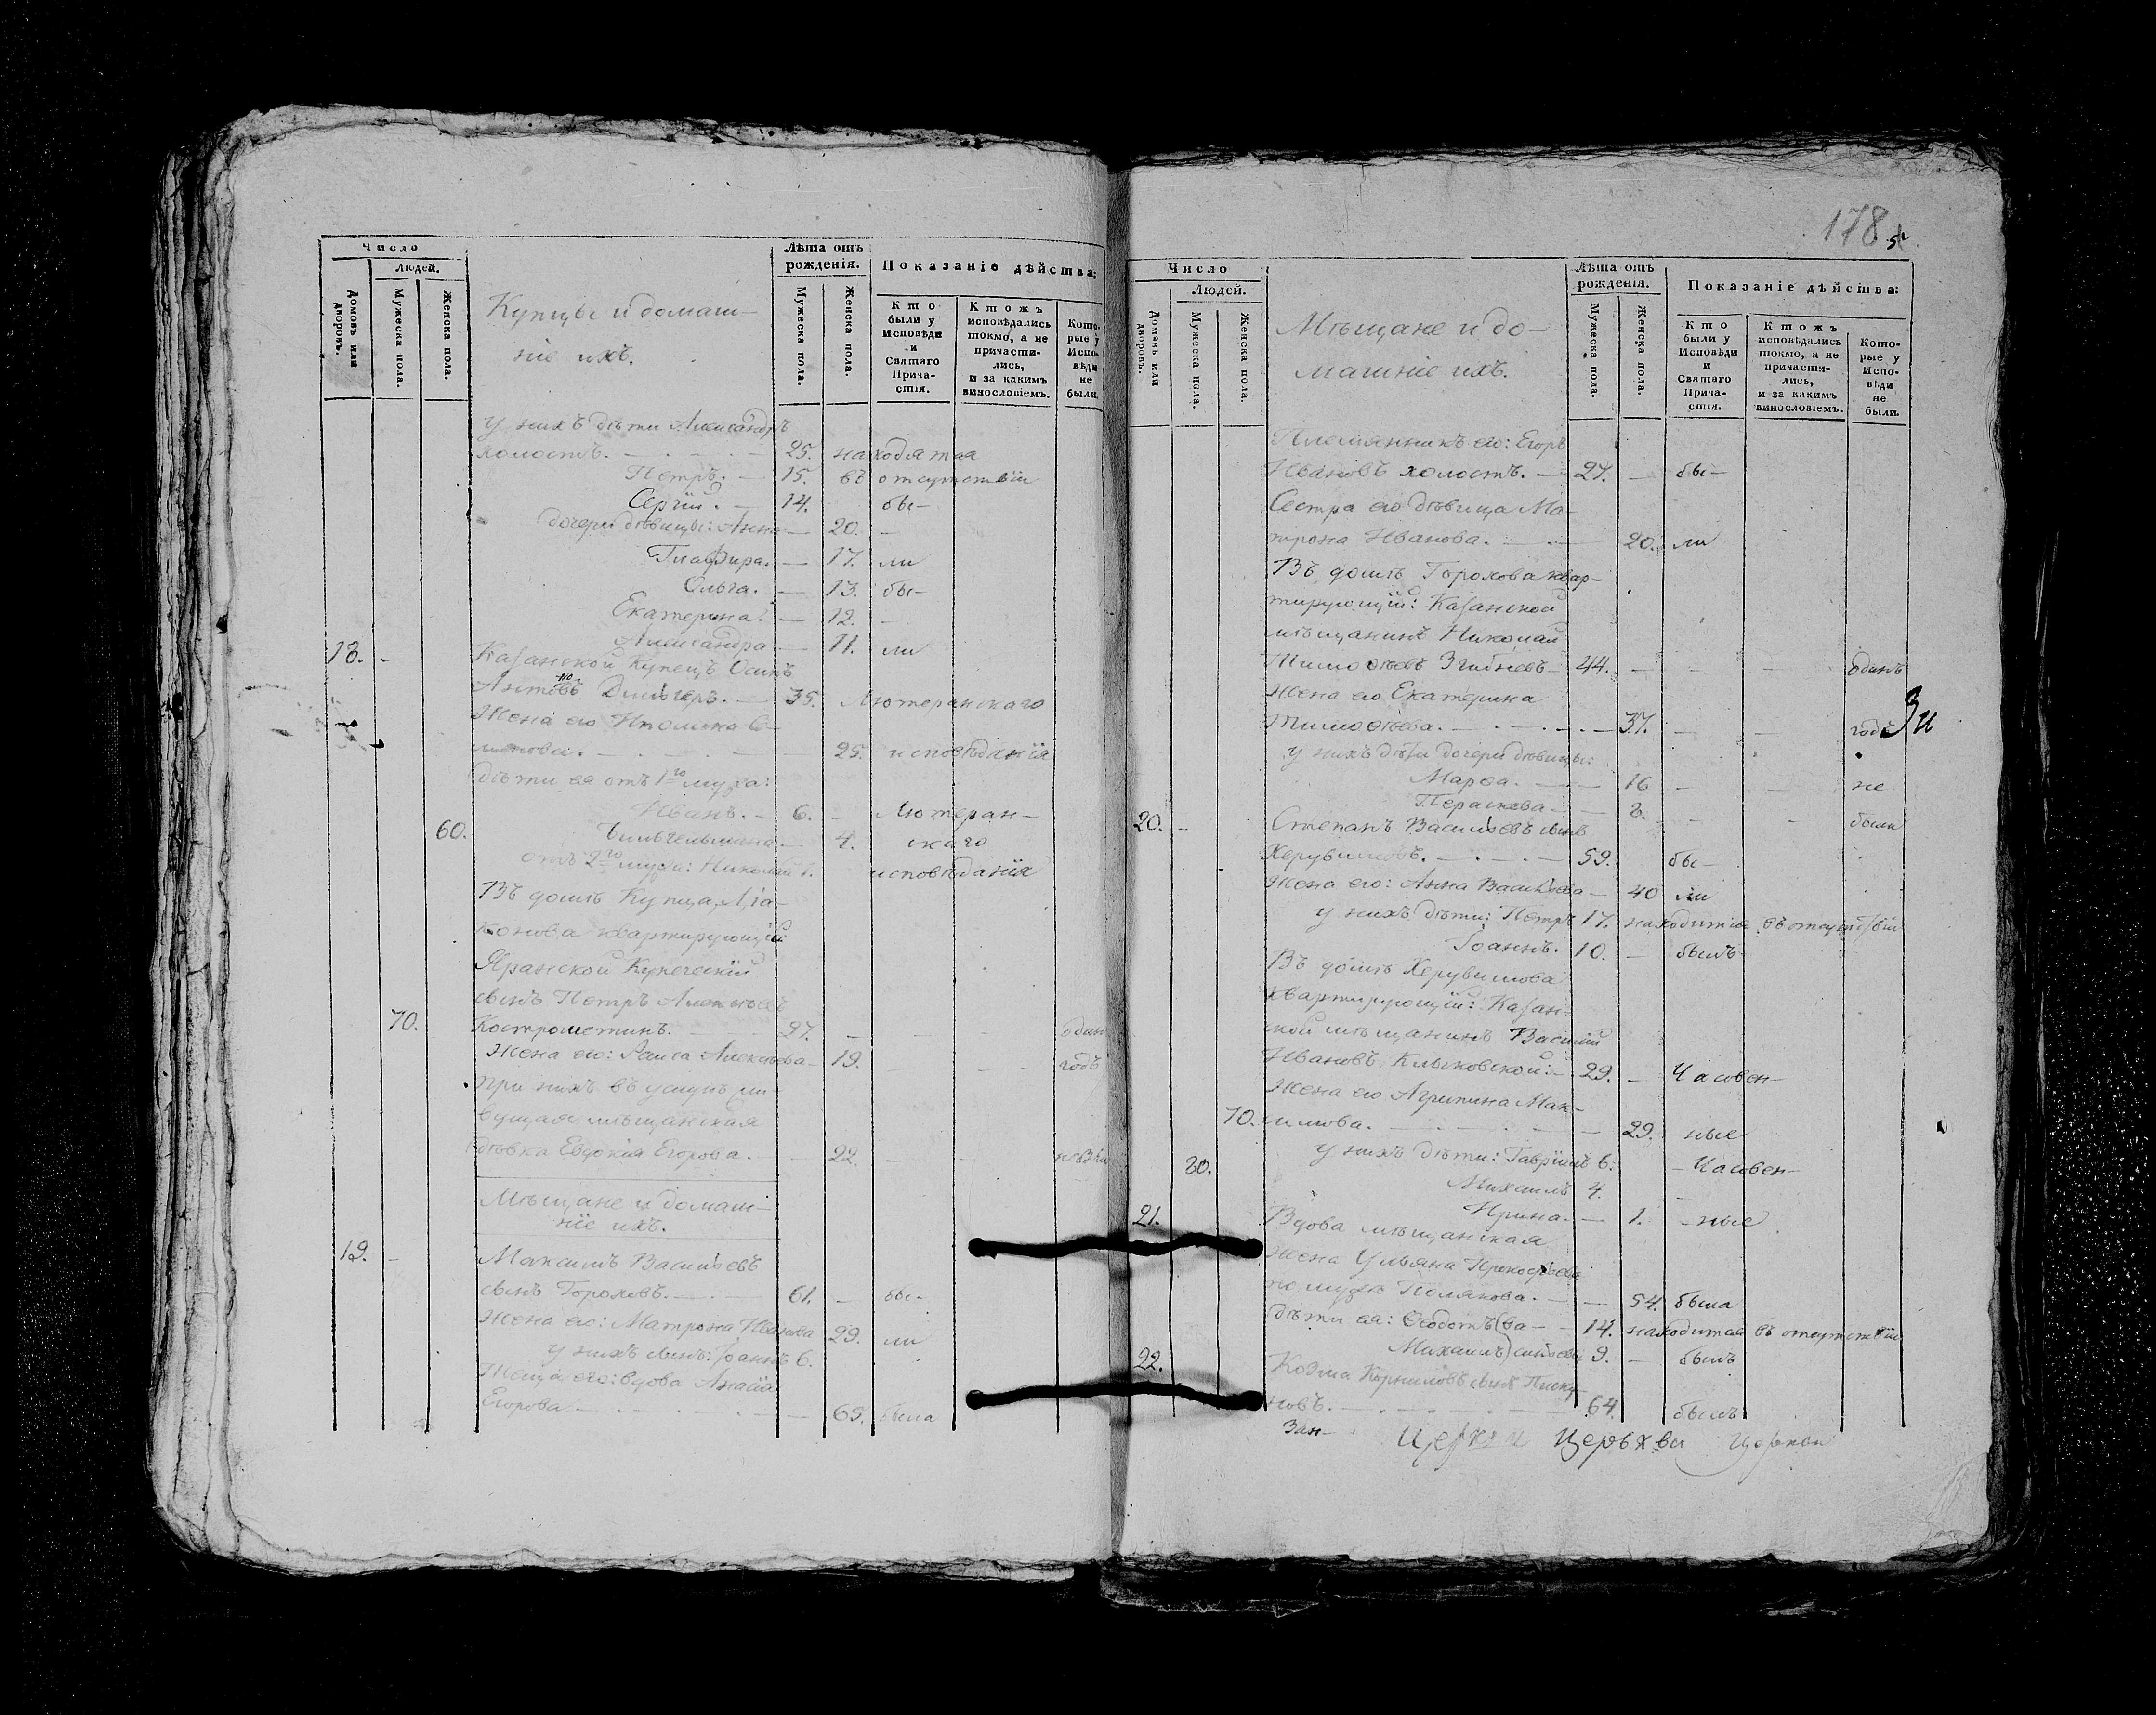 Число
Людей.
Домовъ или дворовъ.
Мужеска пола.
Женска пола.
Купцы и домаш-
ніе ихъ.
Лѣта отъ
рожденія.
Мужеска пола.
Женска пола.
Показаніе дѣйства:
Кто
были у
Исповѣди
и
Святаго
Прича-
стія.
Ктожъ
исповѣдались
токмо, а не
причасти-
лись,
и за какимъ
винословіемъ.
Кото-
рые у
Испо-
вѣди
не
были.
у нихъ дѣти Александръ
холостъ. 25. находятся
Петръ. 15. въ отсутствіи
Сергій. 14. бы-
дочери дѣвицы: Анна 20. -
Глафира. 17. ли
Ольга. 13. бы-
Екатерина. 12. -
Александра 11. ли
18. - Казанской Купецъ Осипъ
35. Лютеранскаго
Жена его
25. исповѣданія
дѣти ея отъ 1го мужа:
Иванъ. - 6. - Лютеран-
60. Вильгельмина 4. скаго
отъ 2го мужа: Николай 1. исповѣданія
Въ домѣ Купца Ліа-
конова квартирующій
Яранской Купеческій
сынъ Петръ Алексѣевъ
70. Кострометинъ. 27. - - - один
Жена его: Раиса Алексѣева 19. - - годъ
При нихъ въ услуж. жи-
вущая мѣщанская
дѣвка Евдокія Егорова. 22.
Мѣщане и домаш-
ніе ихъ.
19. - Максимъ Васильевъ
сынъ Гороховъ. 61. - бы-
Жена его: Матрона Иванова 29. ли
у нихъ сынъ: Іоаннъ 6.
Теща его: вдова
Егорова. 69. была
178
Число
Людей.
Домовъ или дворовъ.
Мужеска пола.
Женска пола.
Мѣщане и до-
машніе ихъ.
Лѣта отъ
рожденія.
Мужеска пола.
Женска пола.
Показаніе дѣйства:
Кто
были у
Исповѣди
и
Святаго
Прича-
стія.
Ктожъ
исповѣдались
токмо, а не
причасти-
лись,
и за какимъ
винословіемъ.
Кото-
рые у
Испо-
вѣди
не
были.
Племянникъ его: Егоръ
Ивановъ холостъ. 27. - бы-
Сестра его дѣвица Ма-
трона Иванова. 20. ли
Въ домѣ Горохова квар-
тирующій: Казанской
мѣщанинъ Николай
Тимоѳѣевъ Згибневъ 44. - - - одинъ
Жена его Екатерина
Тимоѳѣева. 37. - - годъ
у нихъ дѣти дочери дѣвицы:
Марѳа. 16 - - не
Параскева 8. - - были
20. - Степанъ Васильевъ сынъ
Херувимовъ. 59. бы-
Жена его: Анна Васильева 40 ли
у нихъ дѣти: Петръ 17. находится въ отсутствіи
Іоаннъ. 10. - былъ
Въ домѣ Херувимова
квартирующій: Казан-
ской мѣщанинъ Василій
Ивановъ Клыковской: 29. - Часовен-
Жена его Агрипина Мак-
70. симова. 29. ные
80. у нихъ дѣти: Гавріилъ 6. - Часовен-
Михаилъ 4. -
Ирина. 1. - ные
21. Вдова мѣщанская
жена Ульяна Прокофьева
по мужѣ Полякова. 54. была
дѣти ея: Ѳедотъ (Ва- 14. находится въ отсутствіи
Михаилъ) сильевы 9. - былъ
22. Козма Корниловъ сынъ Писку-
новъ. 64. былъ
Зан- Церкви Церьхви Церкви